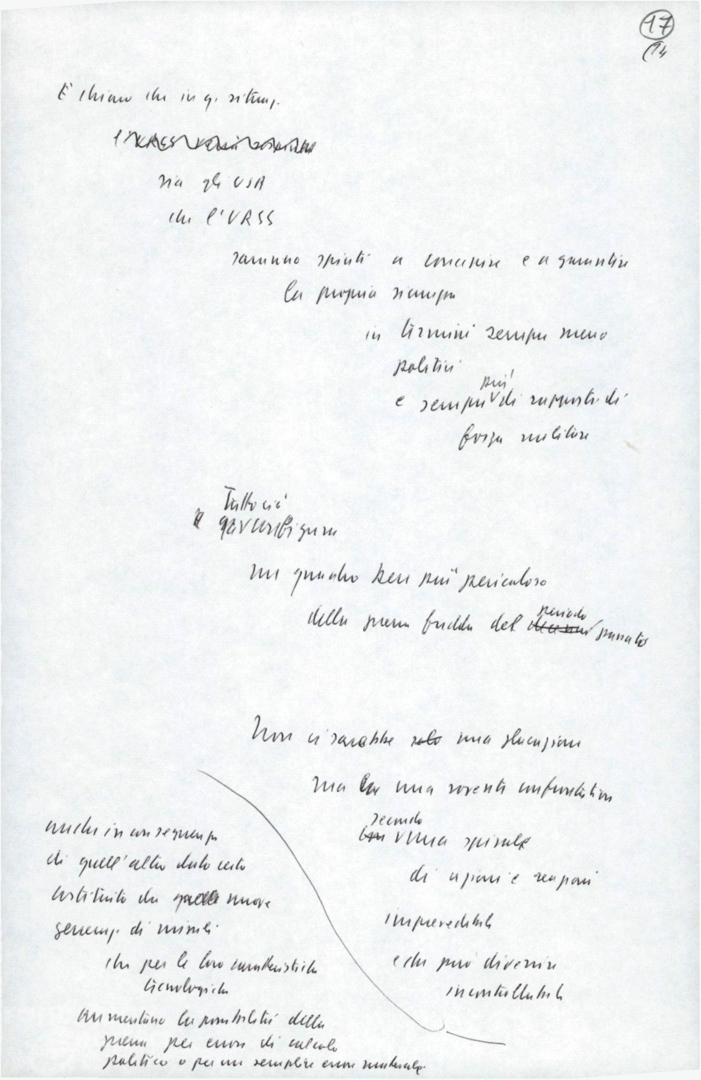 17
14
È chiaro che in q. situaz.
sia gli USA
che l'URSS
saranno spinti a concepire e a garantire
la propria sicurezza
in termini sempre meno
politici
più
e sempre V di rapporti di
forza militare
Tutto ciò
configura
un quadro ben più pericoloso
periodo
della guerra fredda del passato
Non ci sarebbe solo una glaciazione
ma una rovente
secondo
V una spirale
di azioni e reazioni
imprevedibile
e che può divenire
incontrollabile
anche in conseguenza
di quell'altro dato certo
costituito da nuove
generaz. di missili
che per le loro caratteristiche
tecnologiche
aumentano la possibilità della
guerra per errore di calcolo
politico o per un semplice errore materiale.